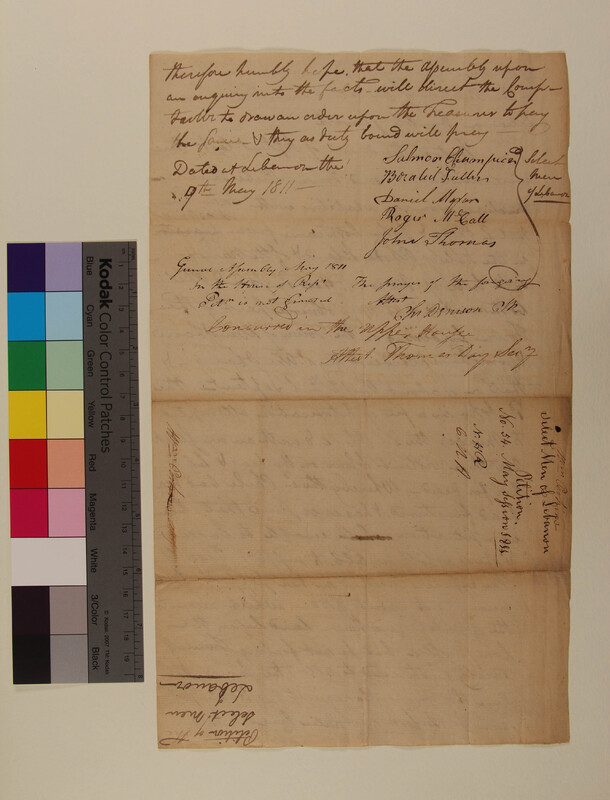 therefore humbly hope, that the Assembly upon
an enquiry into the facts will direct the Comp-
troller to draw an order upon the Treasurer to pay
the same & they as duty bound will pray
Dated at Lebanon the
9th May 1811
Salmon Champion
Bezalel Fuller
Daniel Mason
Roger McCall
John Thomas
Select
men
of Lebanon
General Assembly May 1811
In the House of Reps. The prayer of the foregoing
Petn is not Granted
Attest
Denison Clk.
Concurred in the Upper House
Attest. Thomas Day Secy
Select Men of Lebanon
Petition.
No. 54 May Session 1811
N. H R
C. N H
Petition of the
Select Men
Lebanon
Kodak Color Control Patches
Blue
Cyan
Green
Yellow
Red
Magenta
White
3/Color
Black